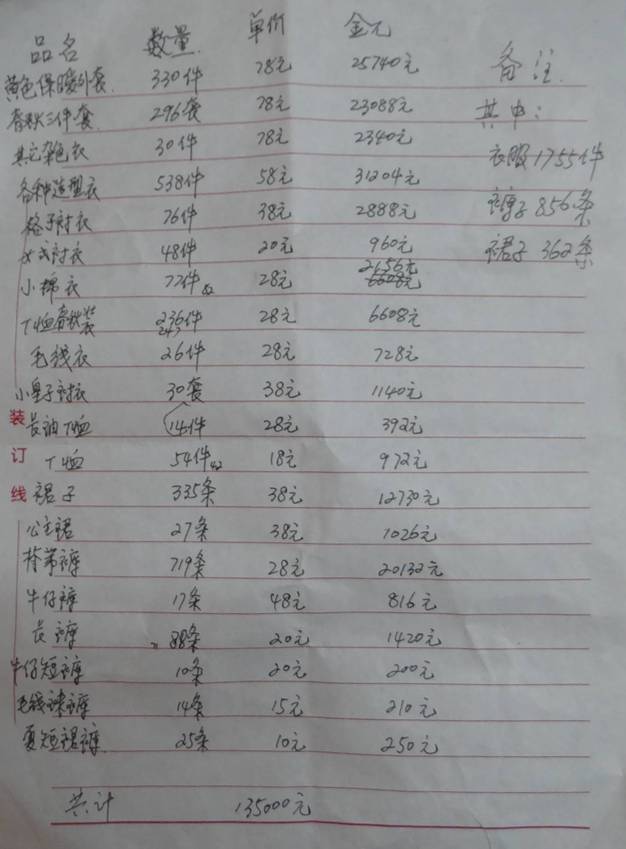 品名 数量 单价 金元 备注
黄色保暖外套 330件 78元 25740元
春秋三件套 296套 78元 23088元 其中:
其它杂色衣 30件 78元 2340元 衣服1755件
各种造型衣 538件 58元 31204元 裤子856条
格子衬衣 76件 38元 2888元 裙子362条
女式衬衣 48件 20元 960元
小棉衣 72件 28元 2156元
T恤春秋装 236件 28元 6608元
毛线衣 26件 28元 728元
小皇子衬衣 30套 38元 1140元
装 长油T恤 14件 28元 392元
订 T恤 54件 18元 972元
线 裙子 335条 38元 12730元
公主裙 27条 38元 1026元
背带裤 719条 28元 20132元
牛仔裤 17条 48元 816元
长裤 88条 20元 1420元
牛仔短裤 10条 20元 200元
毛线裤 14条 15元 210元
夏短裙裤 25条 10元 250元
共计 135000元